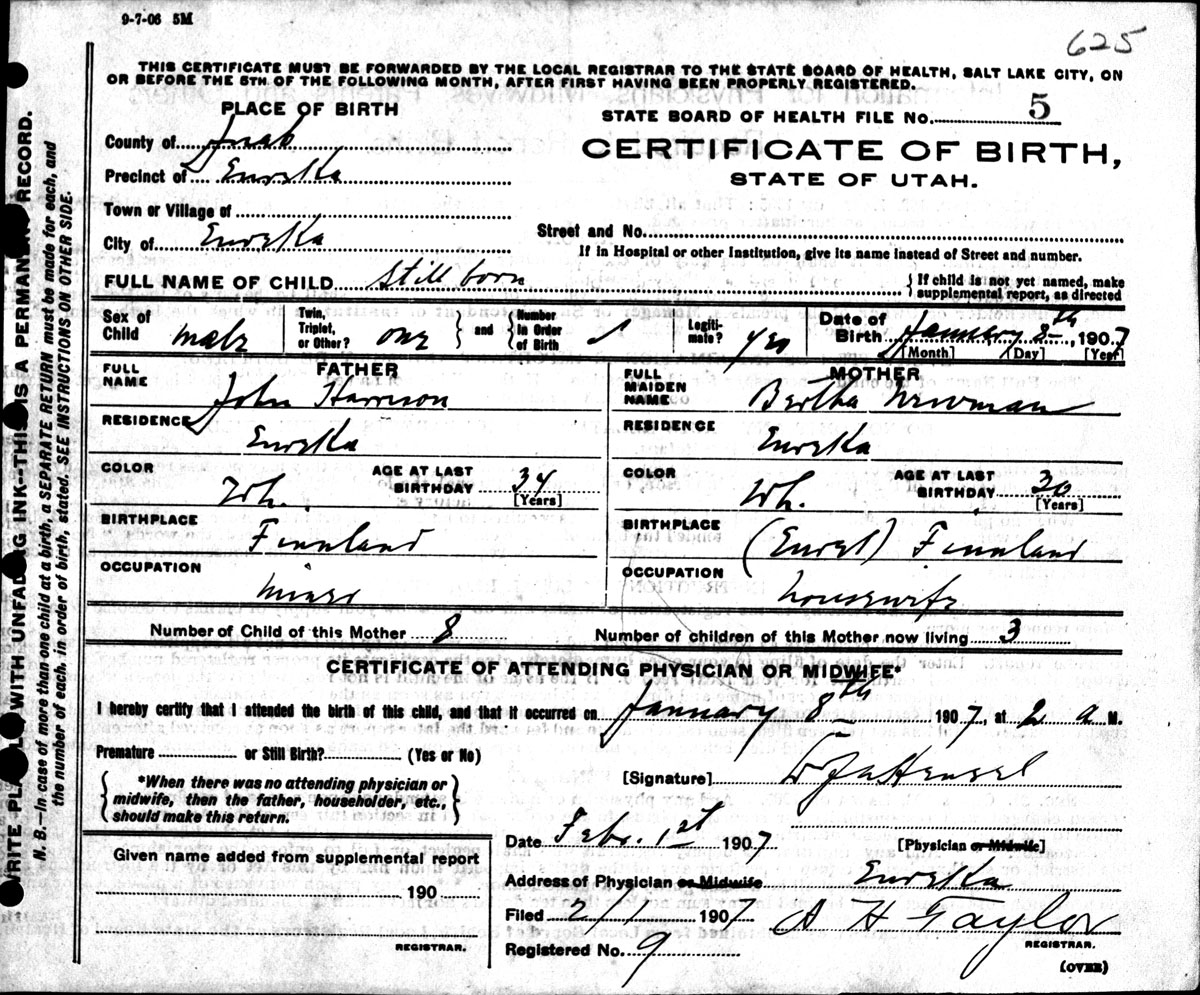 9-7-06 5M
625
THIS CERTIFICATE MUST BE FORWARDED BY THE LOCAL REGISTRAR TO THE STATE BOARD OF HEALTH, SALT LAKE CITY, ON
OR BEFORE THE 5TH OF THE FOLLOWING MONTH, AFTER FIRST HAVING BEEN PROPERLY REGISTERED.
PLACE OF BIRTH
STATE BOARD OF HEALTH FILE No. 5
County of Juab
CERTIFICATE OF BIRTH,
Precinct of Eureka
STATE OF UTAH.
Town or Village of
City of Eureka
Street and No.
If in Hospital or other Institution, give its name instead of Street and number.
FULL NAME OF CHILD Still born
{ If child is not yet named, make
supplemental report, as directed
Sex of Child male
Twin, Triplet, or Other? one } and { Number in Order of Birth
Legiti-mate? yes
Date of Birth January 8th, 1907
[Month] [Day] [Year]
FATHER
FULL NAME John Harrison
RESIDENCE Eureka
COLOR Wh. AGE AT LAST BIRTHDAY 34 [Years]
BIRTHPLACE Finnland
OCCUPATION miner
MOTHER
FULL MAIDEN NAME Bertha Newman
RESIDENCE Eureka
COLOR Wh. AGE AT LAST BIRTHDAY 30 [Years]
BIRTHPLACE Finnland
OCCUPATION Housewife
Number of Child of this Mother 8 Number of children of this Mother now living 3
CERTIFICATE OF ATTENDING PHYSICIAN OR MIDWIFE*
I hereby certify that I attended the birth of this child, and that it occurred on January 8th 1907, at 2 a M.
Premature or Still Birth? (Yes or No)
{ *When there was no attending physician or
midwife, then the father, householder, etc.,
should make this return. }
[Signature]
Date Febr. 1st 1907
[Physician or Midwife]
Given name added from supplemental report
190
REGISTRAR.
Address of Physician or Midwife Eureka
Filed 2/1 1907 A H Taylor
REGISTRAR.
Registered No. 9
(OVER)
WRITE PLAINLY WITH UNFADING INK--THIS IS A PERMANENT RECORD.
N. B.—In case of more than one child at a birth, a SEPARATE RETURN must be made for each, and
the number of each, in order of birth, stated. SEE INSTRUCTIONS ON OTHER SIDE.